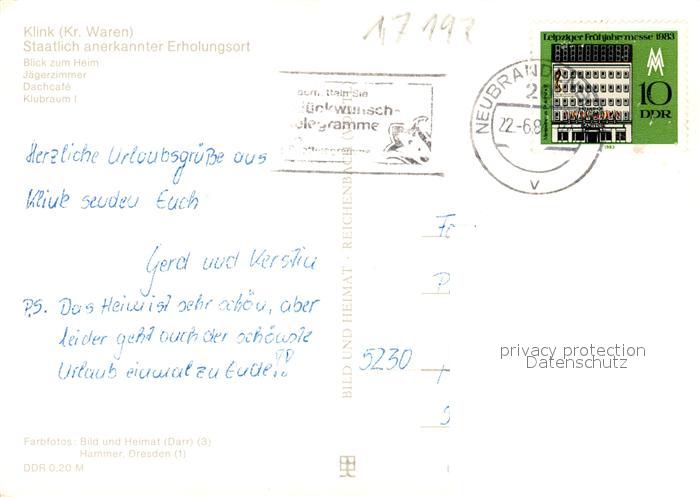 Klink (Kr. Waren)
Staatlich anerkannter Erholungsort
Blick zum Heim
Jägerzimmer
Dachcafé
Klubraum I
17 192
Leipziger Frühjahrsmesse 1983
10
DDR
1983
NEUBRANDENBURG
22-6.8
v
ermitteln Sie
lückwunsch-
elegramme
Herzliche Urlaubsgrüße aus
Klink senden Euch
Gerd und Kerstin
P.S. Das Heim ist sehr schön, aber
leider geht auch der schönste
Urlaub einmal zu Ende!!
BILD UND HEIMAT · REICHENBACH
5230
privacy protection
Datenschutz
Farbfotos: Bild und Heimat (Darr) (3)
Hammer, Dresden (1)
DDR 0,20 M